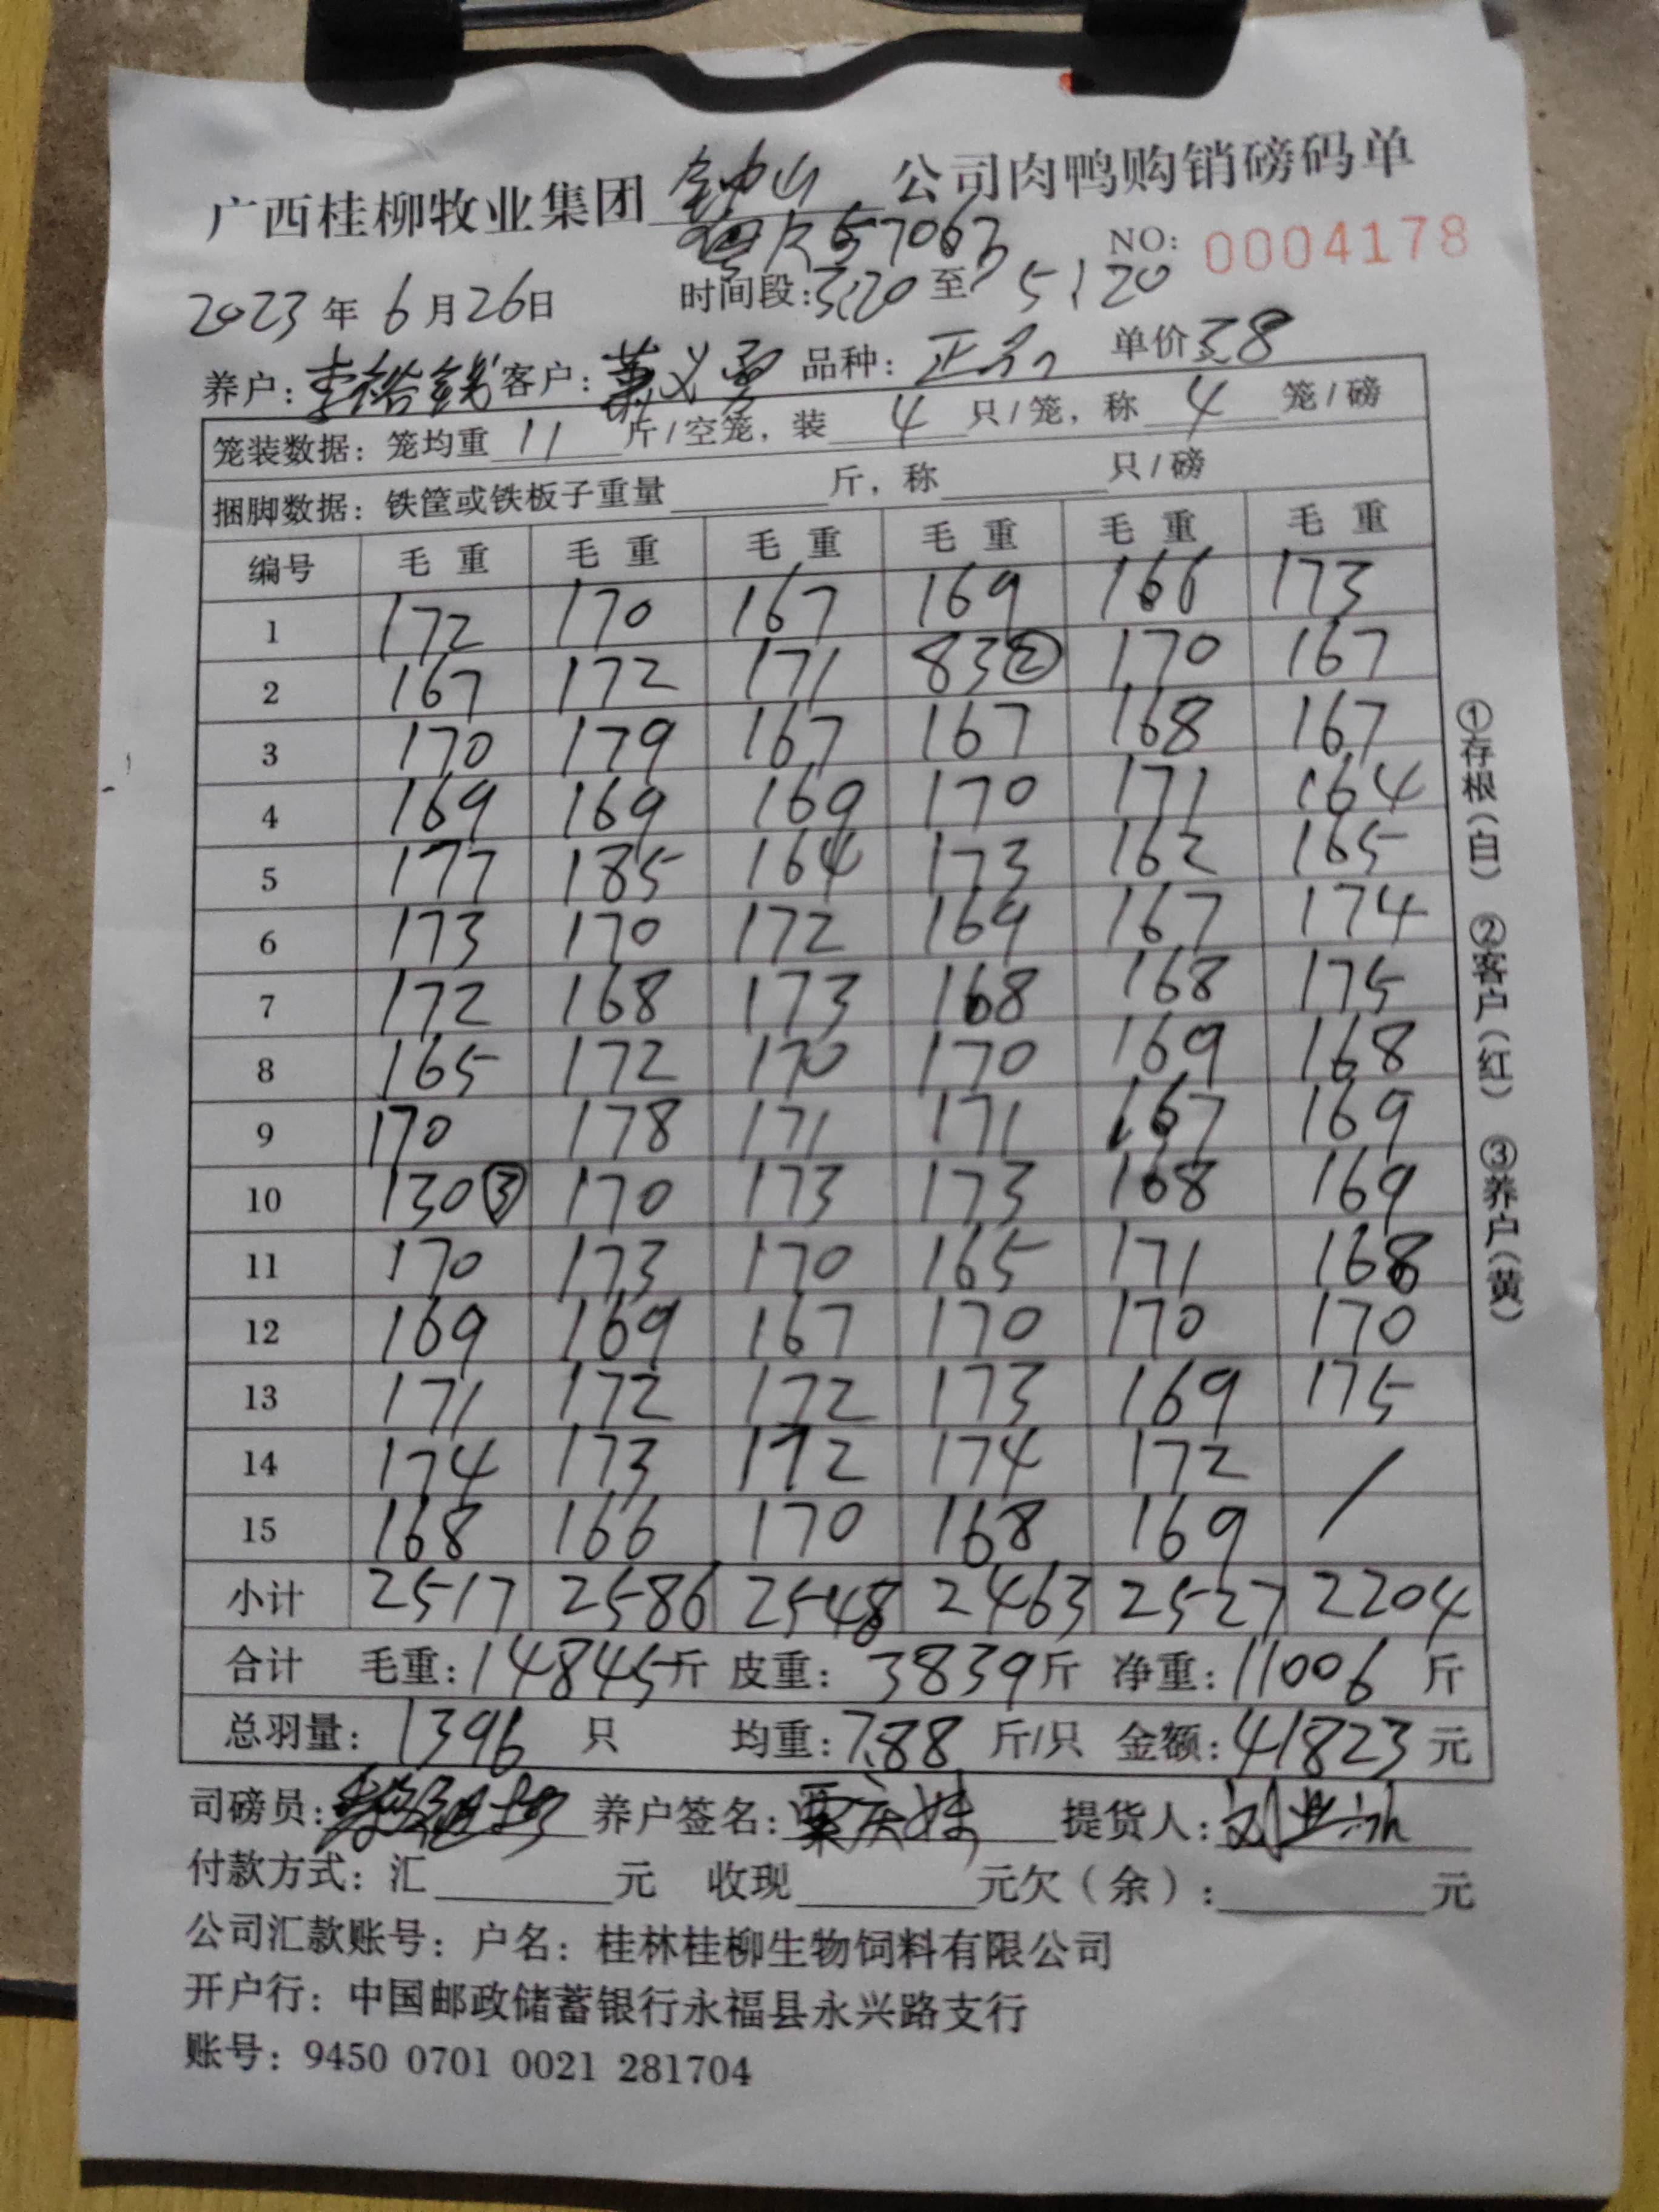 广西桂柳牧业集团 钟山 公司肉鸭购销磅码单
57063 NO: 0004178
2023年6月26日 时间段:3:20至5:20
养户: 客户: 品种: 正 单价3.8
笼装数据: 笼均重 11 斤/空笼, 装 4 只/笼, 称 4 笼/磅
捆脚数据: 铁筐或铁板子重量 斤, 称 只/磅
编号 毛重 毛重 毛重 毛重 毛重 毛重
1 172 170 167 169 166 173
2 167 172 171 83② 170 167
3 170 179 167 167 168 167
4 169 169 169 170 171 164
5 177 185 164 173 162 165
6 173 170 172 169 167 174
7 172 168 173 168 168 175
8 165 172 170 170 169 168
9 170 178 171 171 167 169
10 130③ 170 173 173 168 169
11 170 173 170 165 171 168
12 169 169 167 170 170 170
13 171 172 172 173 169 175
14 174 173 172 174 172 /
15 168 166 170 168 169
小计 2517 2586 2548 2463 2527 2204
合计 毛重:14845斤 皮重: 3839斤 净重:11006 斤
总羽量: 1396 只 均重:7.88 斤/只 金额:41823元
司磅员: 养户签名: 提货人:
付款方式: 汇 元 收现 元欠(余): 元
公司汇款账号: 户名: 桂林桂柳生物饲料有限公司
开户行: 中国邮政储蓄银行永福县永兴路支行
账号: 9450 0701 0021 281704
①存根(白) ②客户(红) ③养户(黄)